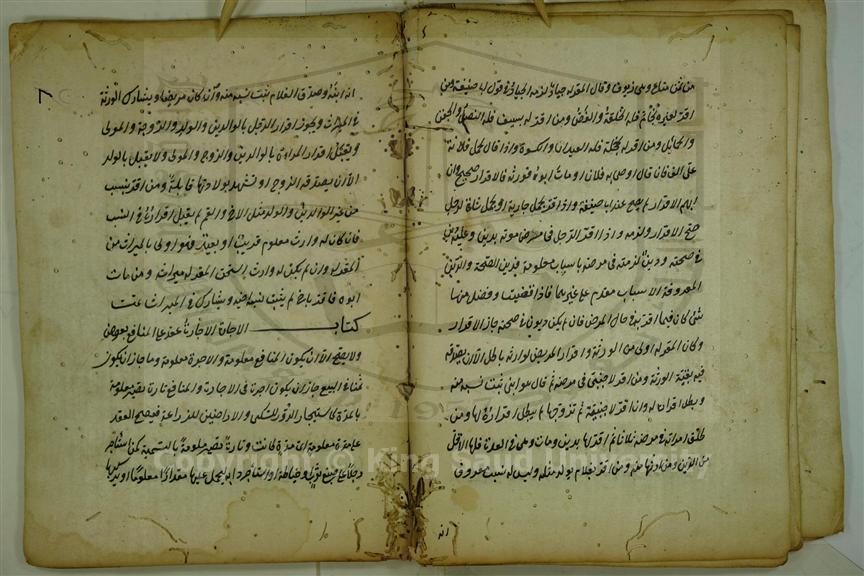 من ثمن متاع وهي زيوف وقال المقر له جياد لزمه الجياد في قول ابي حنيفة ومن
اقر لغيره بخاتم فله الحلقة والفص ومن اقر له بسيف فله النصل والجفن
والحمائل ومن اقر له بحجلة فله العيدان والكسوة واذا قال لحمل فلانة
علي الف فان قال اوصى به فلان او مات ابوه فورثه فالاقرار صحيح وان
ابهم الاقرار لم يصح عند ابي حنيفة واذا اقر بحمل جارية او بحمل شاة لرجل
صح الاقرار ولزمه واذا اقر الرجل في مرض موته بدين وعليه دين
في صحته ودين لزمته في مرضه باسباب معلومة فدين الصحة والدين
المعروفة الاسباب مقدم على غيرهما فاذا قضيت وفضل منها
شئ كان فيما اقر به في حال المرض فان لم يكن ديون في صحته جاز الاقرار
وكان المقر له اولى من الورثة واقرار المريض لوارثه باطل الا ان يصدقه
فيه بقية الورثة ومن اقر لاجنبي في مرضه ثم قال هو ابني ثبت نسبه منه
وبطل اقراره له وان اقر لاجنبية ثم تزوجها لم يبطل اقراره لها ومن
طلق امراته في مرضه ثلاثا ثم اقر لها بدين ومات وهي في العدة فلها الاقل
من الدين ومن ارثها منه ومن اقر بغلام يولد مثله وليس له نسب معروف
انه
٧
انه ابنه وصدق الغلام ثبت نسبه منه وان كان مريضا ويشارك الورثة
في الميراث ويجوز اقرار الرجل بالوالدين والولد والزوجة والمولى
ويقبل اقرار المراة بالوالدين والزوج والمولى ولا يقبل بالولد
الا ان يصدقه الزوج او تشهد بولادتها قابلة ومن اقر بنسب
من غير الوالدين والولد مثل الاخ والعم لم يقبل اقراره في النسب
فان كان له وارث معلوم قريب او بعيد فهو اولى بالميراث من
المقر له وان لم يكن له وارث استحق المقر له ميراثه ومن مات
ابوه فاقر باخ لم يثبت نسب اخيه ويشاركه في الميراث
كتاب الاجارة الاجارة عقد على المنافع بعوض
ولا يصح الا ان يكون المنافع معلومة والاجرة معلومة وما جاز ان يكون
ثمنا في البيع جاز ان يكون اجرة في الاجارة والمنافع تارة يصير معلومة
بالمدة كاستيجار الدور للسكنى والارضين للزراعة فيصح العقد
على مدة معلومة اي مدة كانت وتارة يصير معلومة بالتسمية كمن استاجر
رجلا على صبغ ثوب او خياطة او استاجر دابة ليحمل عليها مقدارا معلوما او يركبها